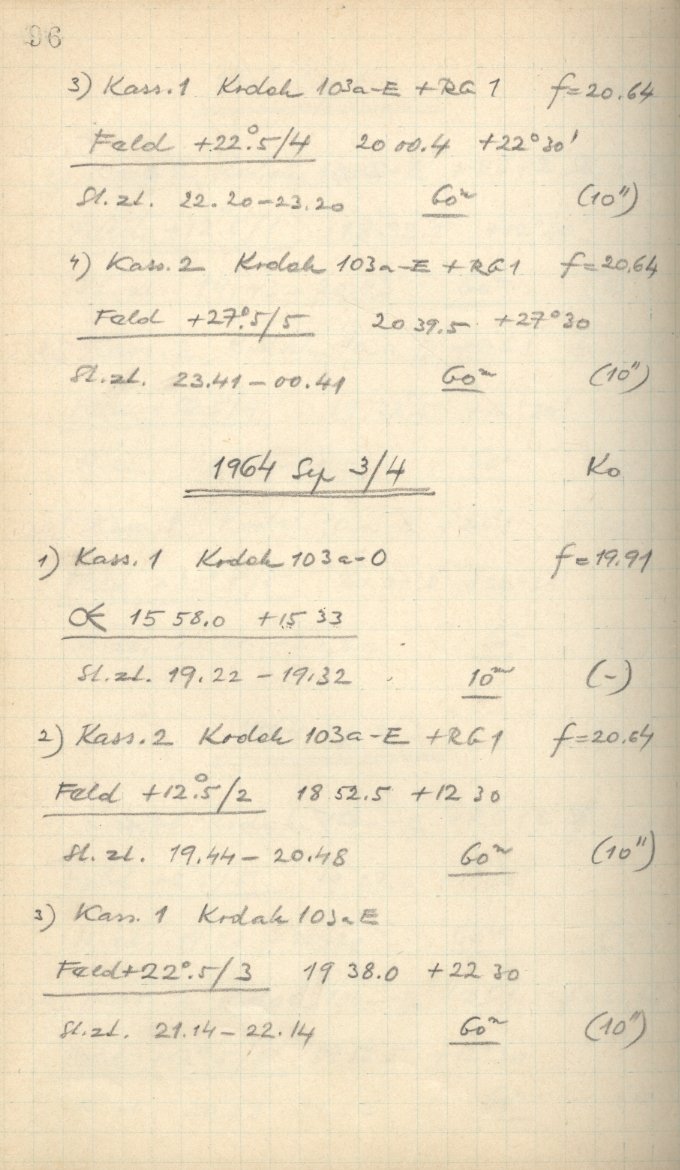 96
3) Kass. 1 Kodak 103a-E + RG 1 f=20.64
Feld +22°.5/4 20 00.4 +22°30'
St.zt. 22.20-23.20 60m (10")
4) Kass. 2 Kodak 103a-E + RG1 f=20.64
Feld +27°.5/5 20 39.5 +27°30
St.zt. 23.41-00.41 60m (10")
1964 Sep 3/4 Ko
1) Kass. 1 Kodak 103a-O f=19.91
15 58.0 +15 33
St.zt. 19.22-19.32 10m (-)
2) Kass. 2 Kodak 103a-E +RG1 f=20.64
Feld +12°.5/2 18 52.5 +12 30
St.zt. 19.44-20.48 60m (10")
3) Kass. 1 Kodak 103a E
Feld+22°.5/3 19 38.0 +22 30
St.zt. 21.14-22.14 60m (10")